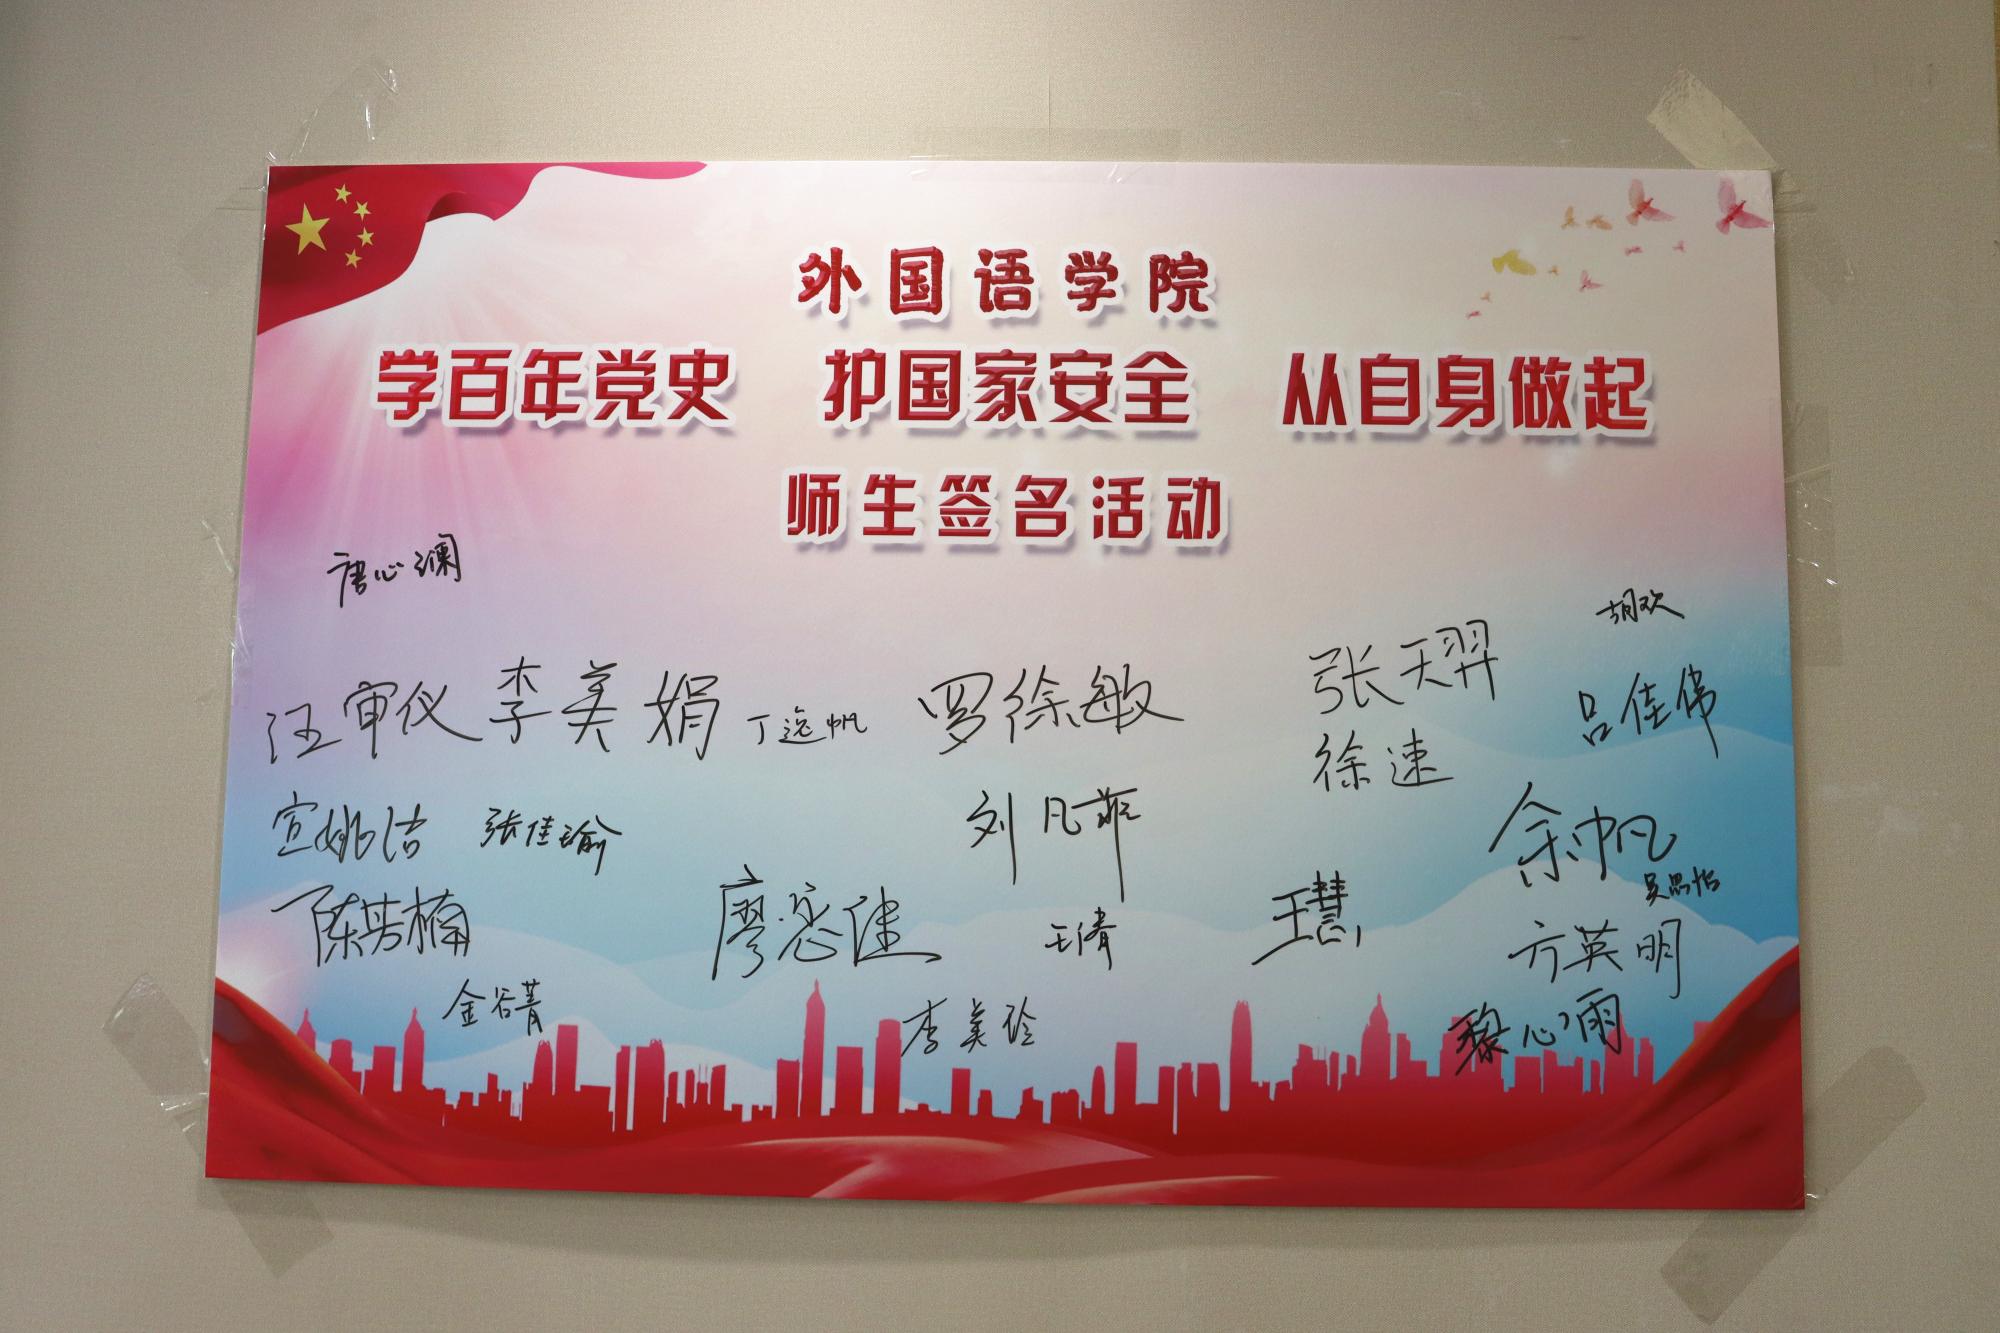 外国语学院
学百年党史 护国家安全 从自身做起
师生签名活动
唐心澜
胡欢
汪审仪 李美娟 丁逸帆 罗徐敏 张天羿
吕佳伟
徐速
宣姚洁 张佳瑜 刘凡菲 余帆
吴思怡
陈芳楠 廖恋佳 王倩 王慧 方英明
金谷菁 李美玲 黎心雨